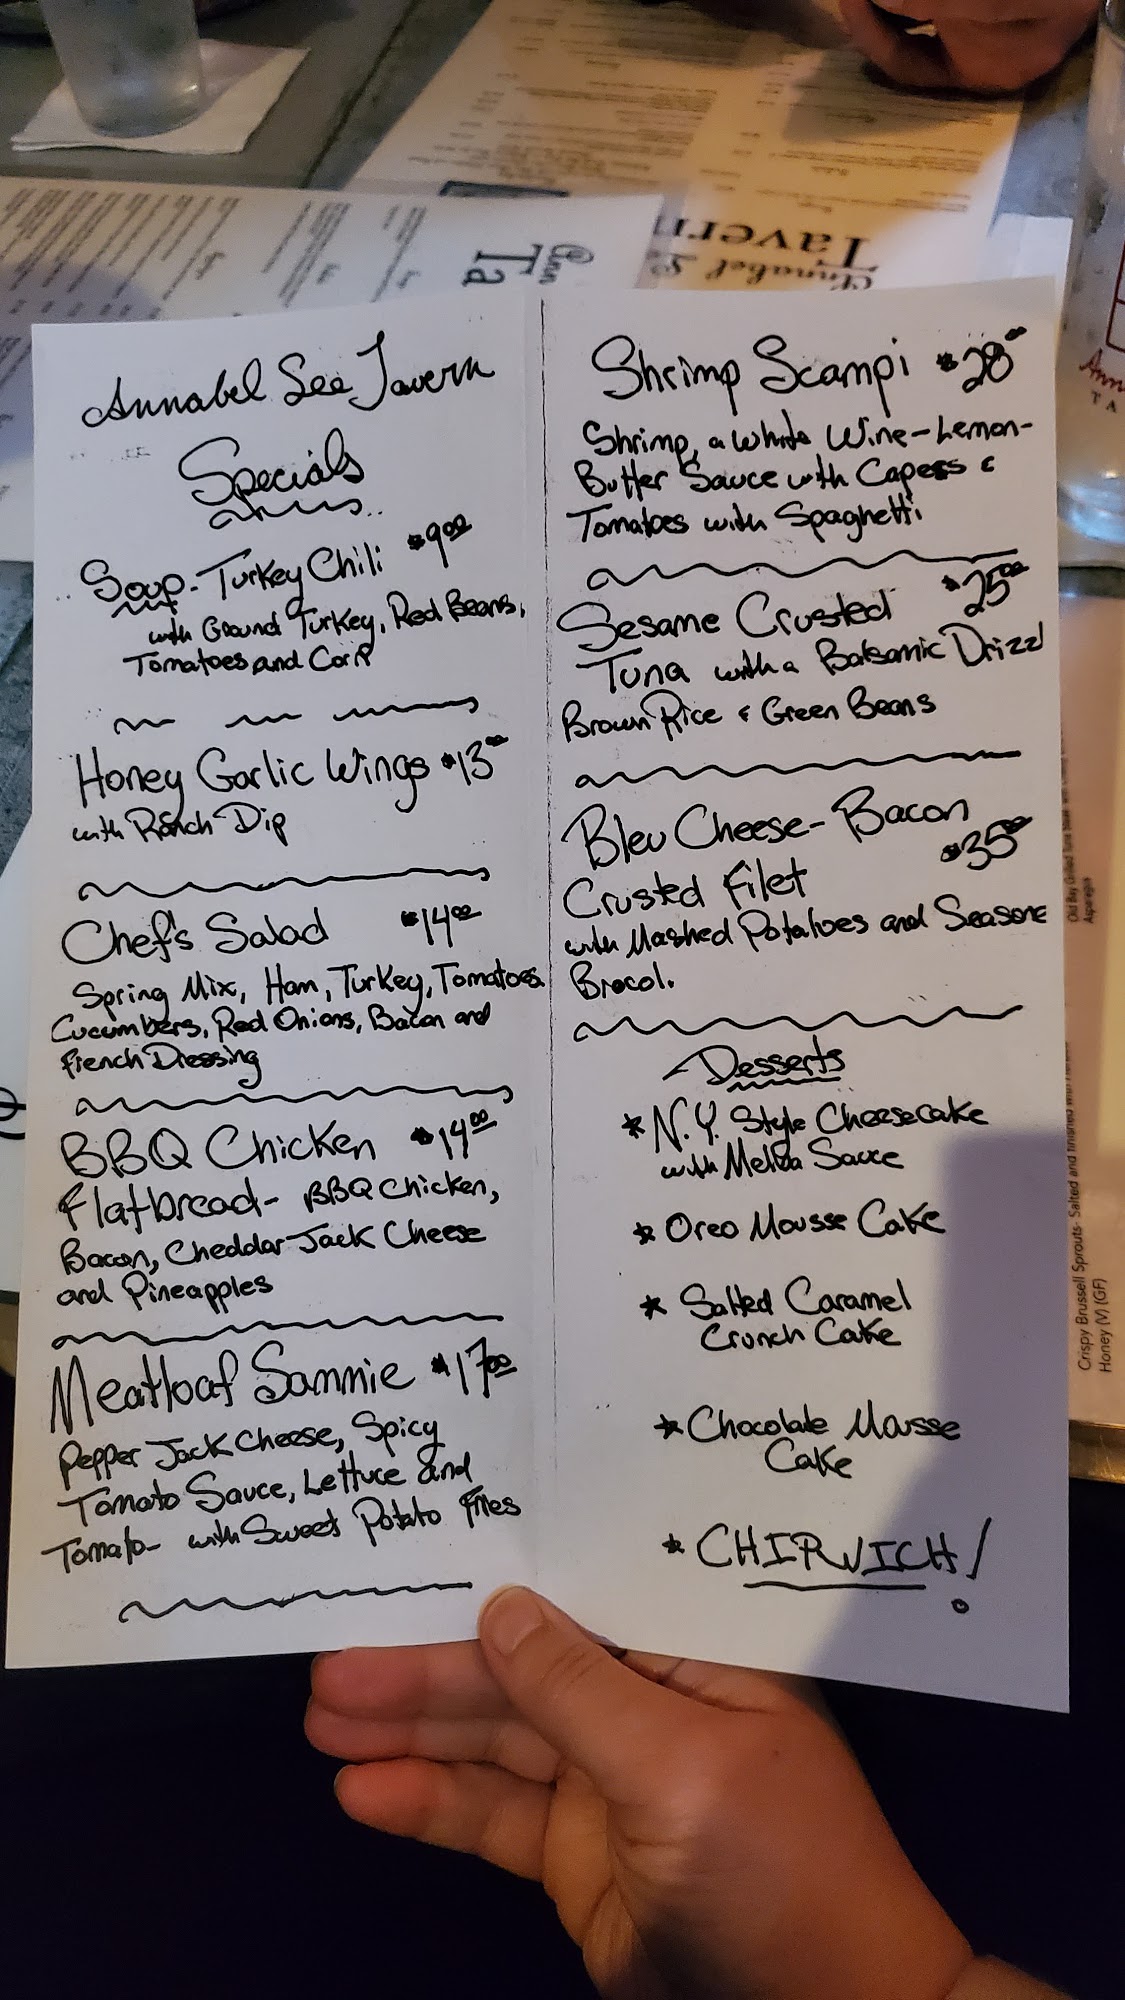 Annabel Lee Tavern
Specials
Soup - Turkey Chili $9.00
with Ground Turkey, Red Beans,
Tomatoes and Corn
Honey Garlic Wings $13.00
with Ranch Dip
Chef's Salad $14.00
Spring Mix, Ham, Turkey, Tomatoes.
Cucumbers, Red Onions, Bacon and
French Dressing
BBQ Chicken $14.00
Flatbread - BBQ Chicken,
Bacon, Cheddar Jack Cheese
and Pineapples
Meatloaf Sammie $17.00
Pepper Jack Cheese, Spicy
Tomato Sauce, Lettuce and
Tomato - with Sweet Potato Fries
Shrimp Scampi $28.00
Shrimp, a White Wine-Lemon-
Butter Sauce with Capers &
Tomatoes with Spaghetti
Sesame Crusted $25.00
Tuna with a Balsamic Drizzl
Brown Rice & Green Beans
Bleu Cheese - Bacon
Crusted Filet $35.00
with Mashed Potatoes and Seasone
Brocol.
Desserts
* N.Y. Style Cheesecake
with Melba Sauce
* Oreo Mousse Cake
* Salted Caramel
Crunch Cake
* Chocolate Mousse
Cake
* CHIRVICH!
Annabel L
Tavern
Ann
Ta
Ann
TA
Asparagus
Crispy Brussell Sprouts- Salted and finished with
Honey (V) (GF)